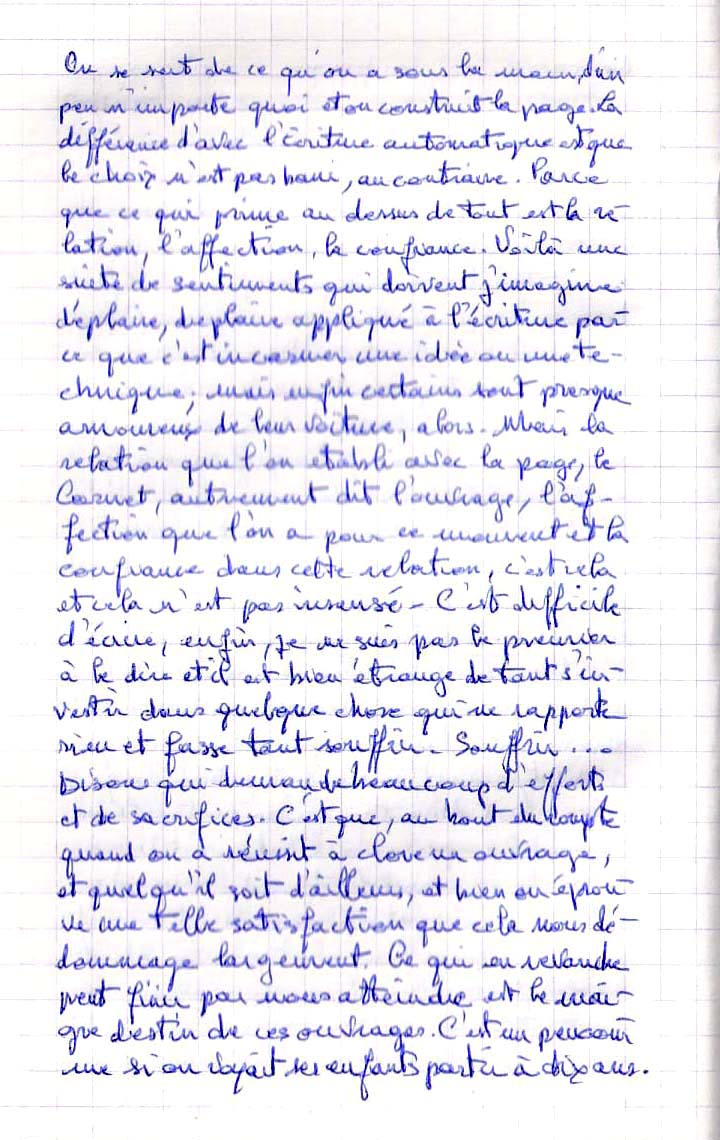 On se sert de ce qu'on a sous la main, d'un
peu n'importe quoi et on construit la page. La
différence d'avec l'écriture automatique est que
le choix n'est pas banni, au contraire. Parce
que ce qui prime au dessus de tout est la re
lation, l'affection, la confiance. Voilà une
suite de sentiments qui doivent j'imagine
déplaire, déplaire appliqué à l'écriture par
ce que c'est incarner une idée ou une te-
chnique; mais enfin certains sont presque
amoureux de leur voiture, alors. Mais la
relation que l'on établi avec la page, le
Carnet, autrement dit l'ouvrage, l'af-
fection que l'on a pour ce moment et la
confiance dans cette relation, c'est cela
et cela n'est pas insensé - C'est difficile
d'écrire, enfin, je ne suis pas le premier
à le dire et il est bien étrange de tant s'in-
vestir dans quelque chose qui ne rapporte
rien et fasse tant souffrir. Souffrir ...
Disons qui demande beaucoup d'efforts
et de sacrifices. C'est que, au bout du compte
quand on a réussit à clore un ouvrage,
et quel qu'il soit d'ailleurs, et bien on éprou
ve une telle satisfaction que cela nous dé-
dommage largement. Ce qui en revanche
peut finir par nous atteindre est le mai-
gre destin de ces ouvrages. C'est un peu com
me si on voyait ses enfants partir à dix ans.